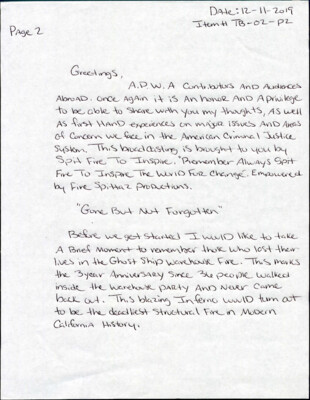 Date: 12-11-2019
Item# TB-02-P2
Page 2
Greetings,
A.P.W.A Contributors And Audiences
Abroad. Once again it is An honor And A privilege
to be able to share with you my thoughts, As well
As first HAND experiences on major issues And Areas
of Concern we face in the American Criminal Justice
System. This broadcasting is brought to you by
Spit Fire To Inspire. "Remember Always Spit
Fire To Inspire The World For Change. Empowered
by Fire Spittaz productions.
"Gone But Not Forgotten"
Before we get started I would like to take
A Brief Moment to remember those who lost their
lives in the Ghost Ship warehouse Fire. This marks
the 3 year Anniversary since 36 people walked
inside the warehouse party And Never Came
back out. This blazing Inferno would turn out
to be the deadliest Structural Fire in Modern
California History.